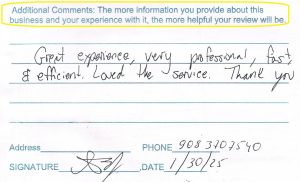 Additional Comments: The more information you provide about this
business and your experience with it, the more helpful your review will be.
Great experience, very professional, fast,
& efficient. Loved the service. Thank you
Address
PHONE 908 370 7540
SIGNATURE ,DATE 1/30/25